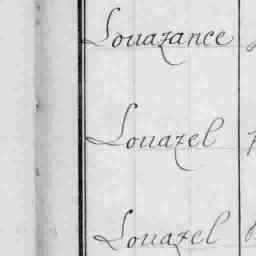 Louazance
Louazel
Louazel